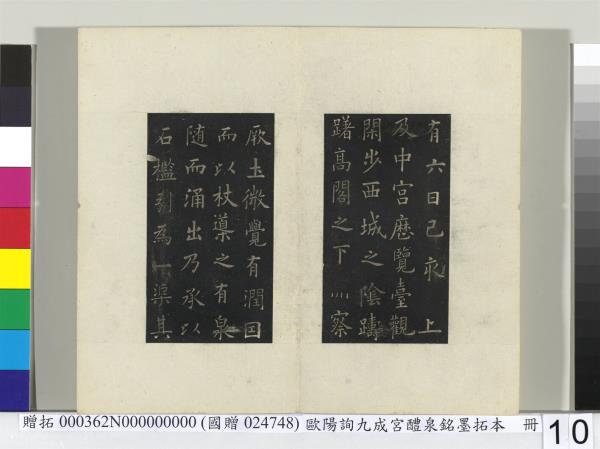 有六日己亥　上
及中宮歷覽臺觀
閑步西城之陰躊
躇高閣之下俯察
厥土微覺有潤因
而以杖導之有泉
随而涌出乃承以
石檻引為一渠其
贈拓 000362N000000000 (國贈 024748) 歐陽詢九成宮醴泉銘墨拓本 冊 10